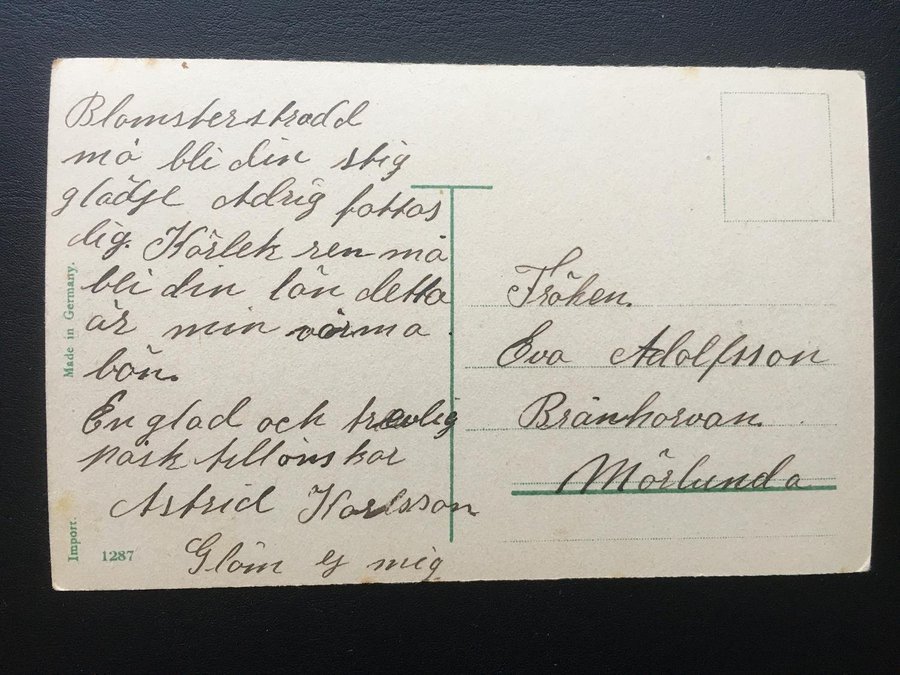 Blomsterströdd
må bli din stig
glädje Adrig fattas
dig. Kärlek ren må
bli din lön detta
är min varma
bön.
En glad och trevlig
påsk tillönskar
Astrid Karlsson
Glöm ej mig
Fröken.
Eva Adolfsson
Mörlunda
Made in Germany.
Import.
1287